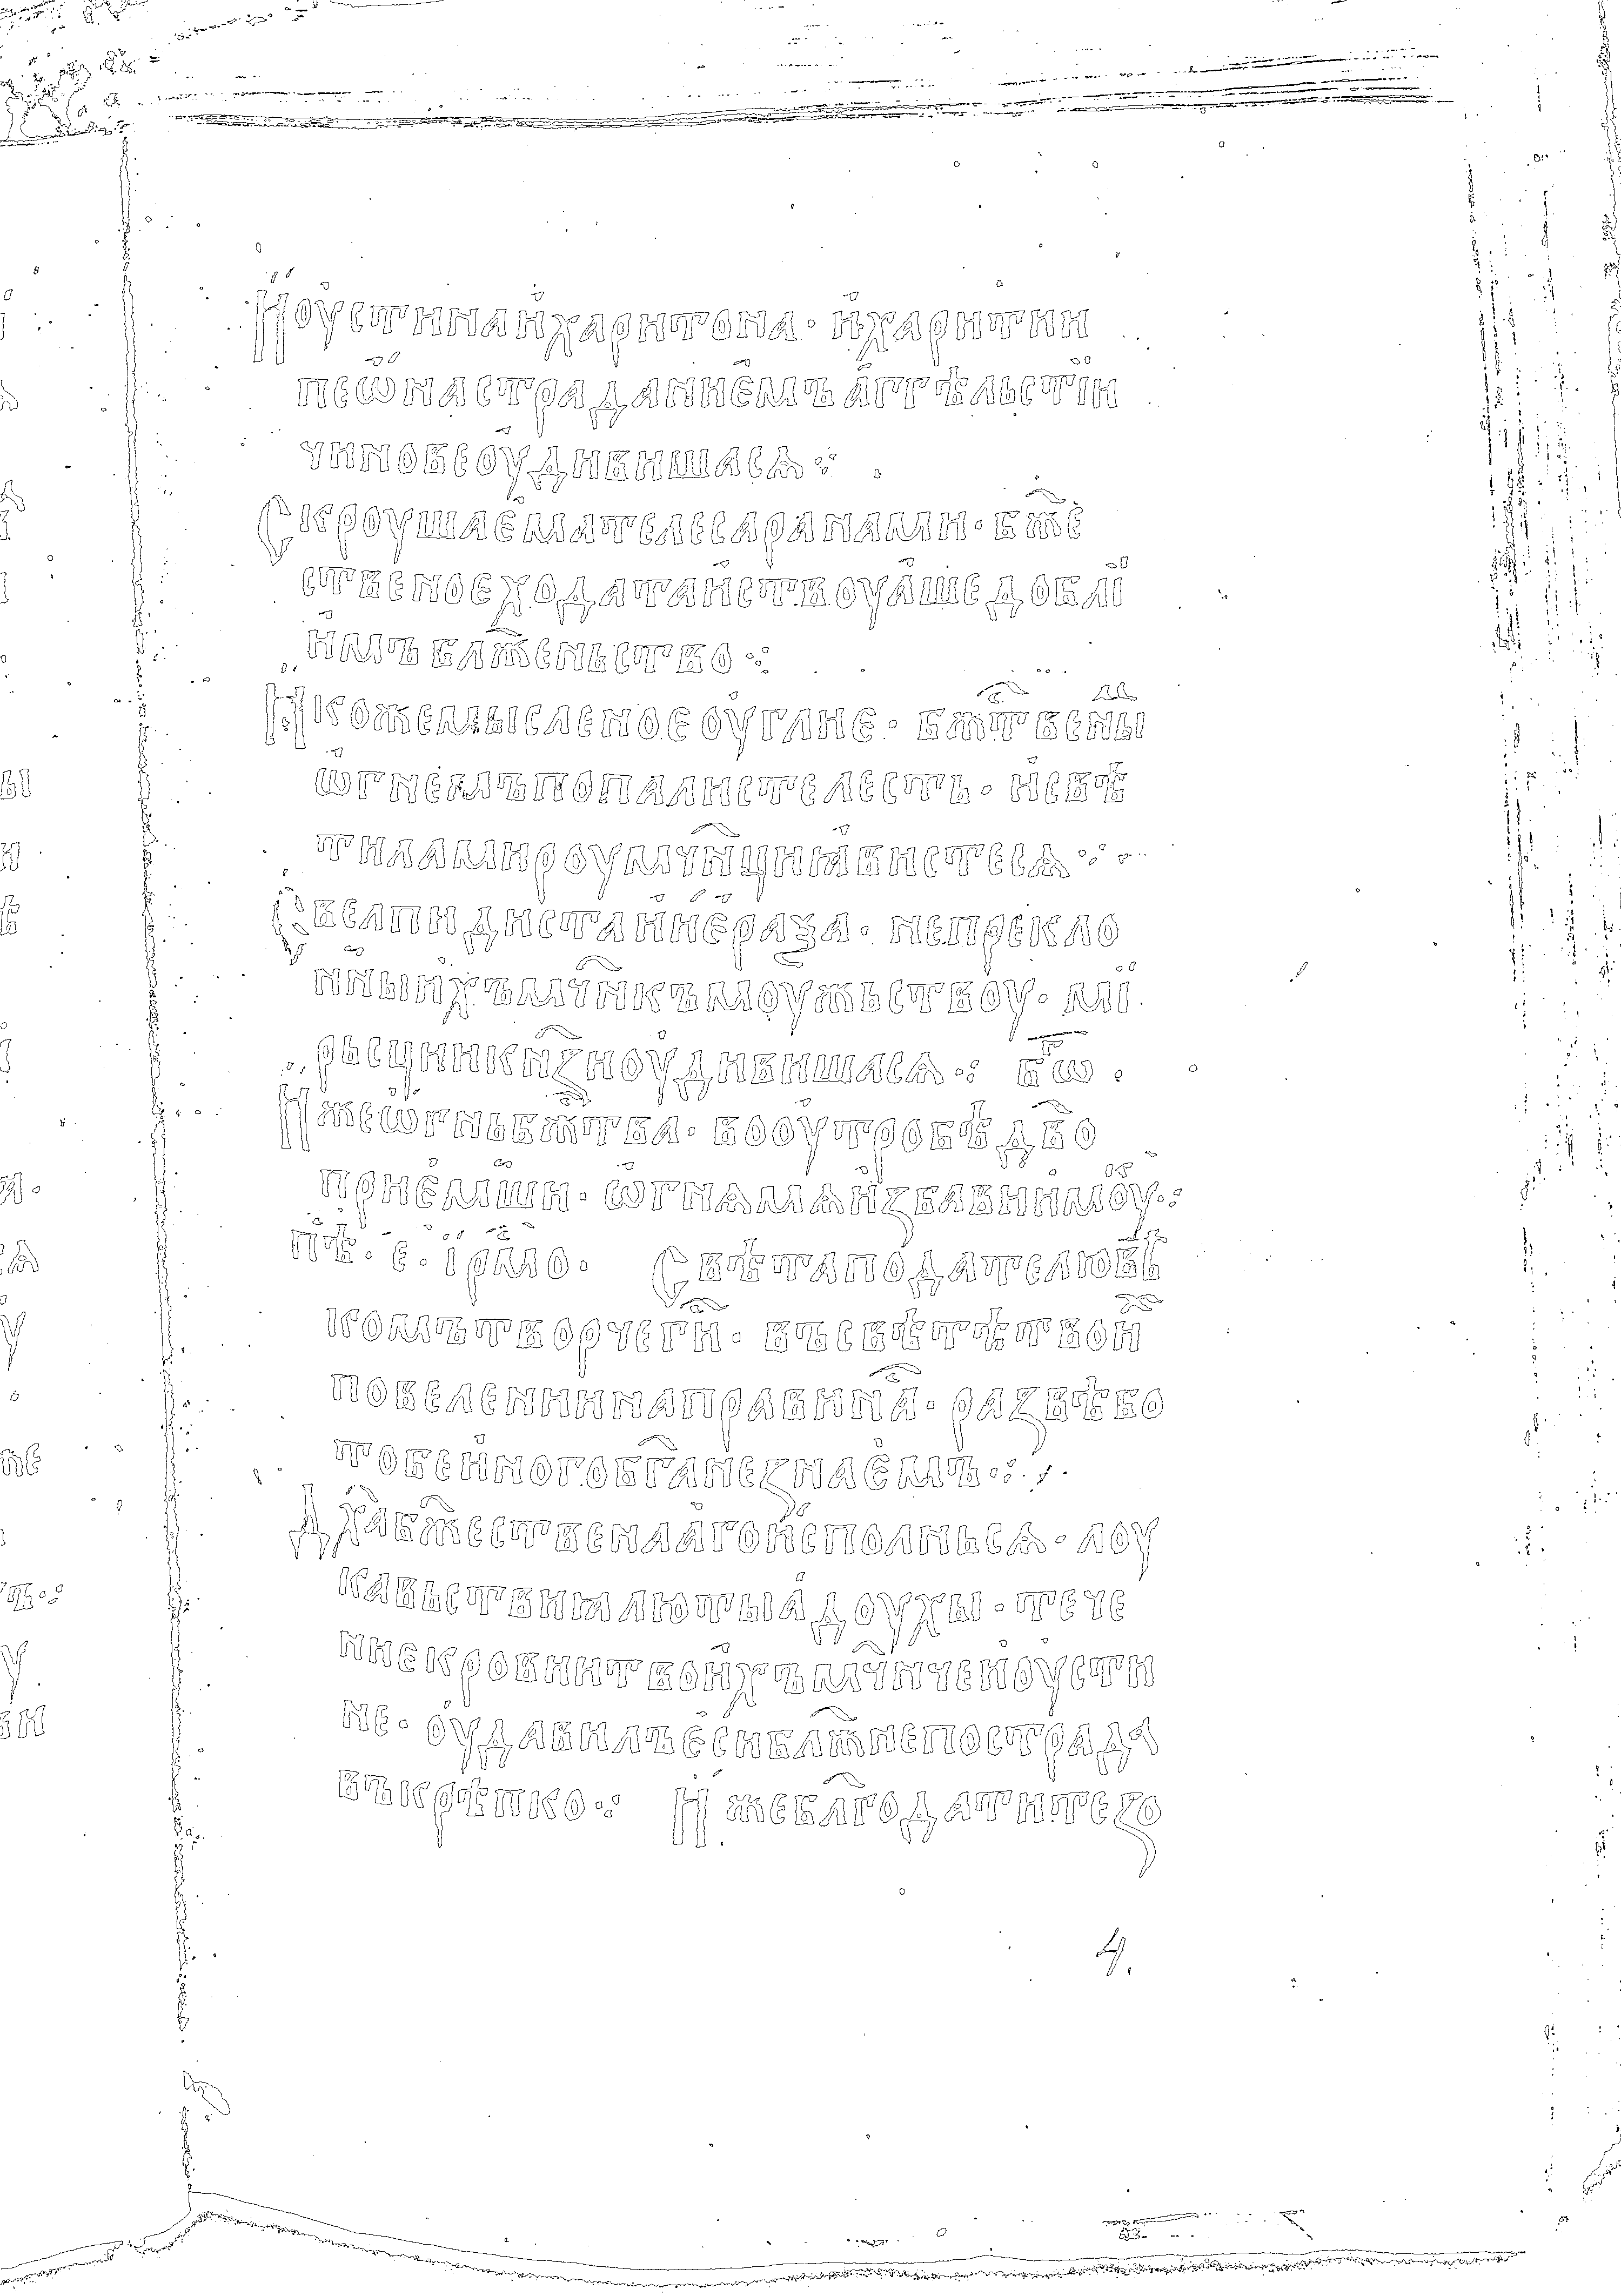 Иоустинаи҆харитона · и҆харитии
пеѡ҆настраданиемъ а҆ггѣльстїи
чинове оудивишасѧ ⁘
Скроушаѐмателесаранами · бж҃е
ственоеходатаиствоуа҆шедоблї
и҆мъ блж҃еньство ⁘
Ꙗкожемысленоеоугліе · бж҃ствены
ѡ҆гнемъпопалистелесть · и҆свѣ
тиламироумч҃нцижависте сѧ ⁘
Свелпидистаниѐраза · непрекло
нныихъмч҃никъмоужьствоу · мї
рьсциикн҃ѕиоудивишасѧ ⁘ бѿ ·
Ижеѡгньбж҃тва · воо҆утробѣдв҃о
приѐмши · ѡ҆гнѧмѧиꙁбавиимоу ⁘
пѣ · е · їрмо · Свѣтаподателювѣ
комътворчеги · въсвѣтѣтвои
повелениинаправин҃а · раꙁвѣбо
тобеи҆ногобг҃анеꙁнаѐмъ ⁘
Дх҃абж҃ественааго и҆сполньсѧ · лоу
кавьствиꙗлютыꙗ҆доухы · тече
ниекровиитвои҆хъмч҃ничеи҆оусти
не · оу҆давилъѐсиблж҃непострада
въкрѣпко ⁘ Ижеблг҃одатитеꙁо
4.